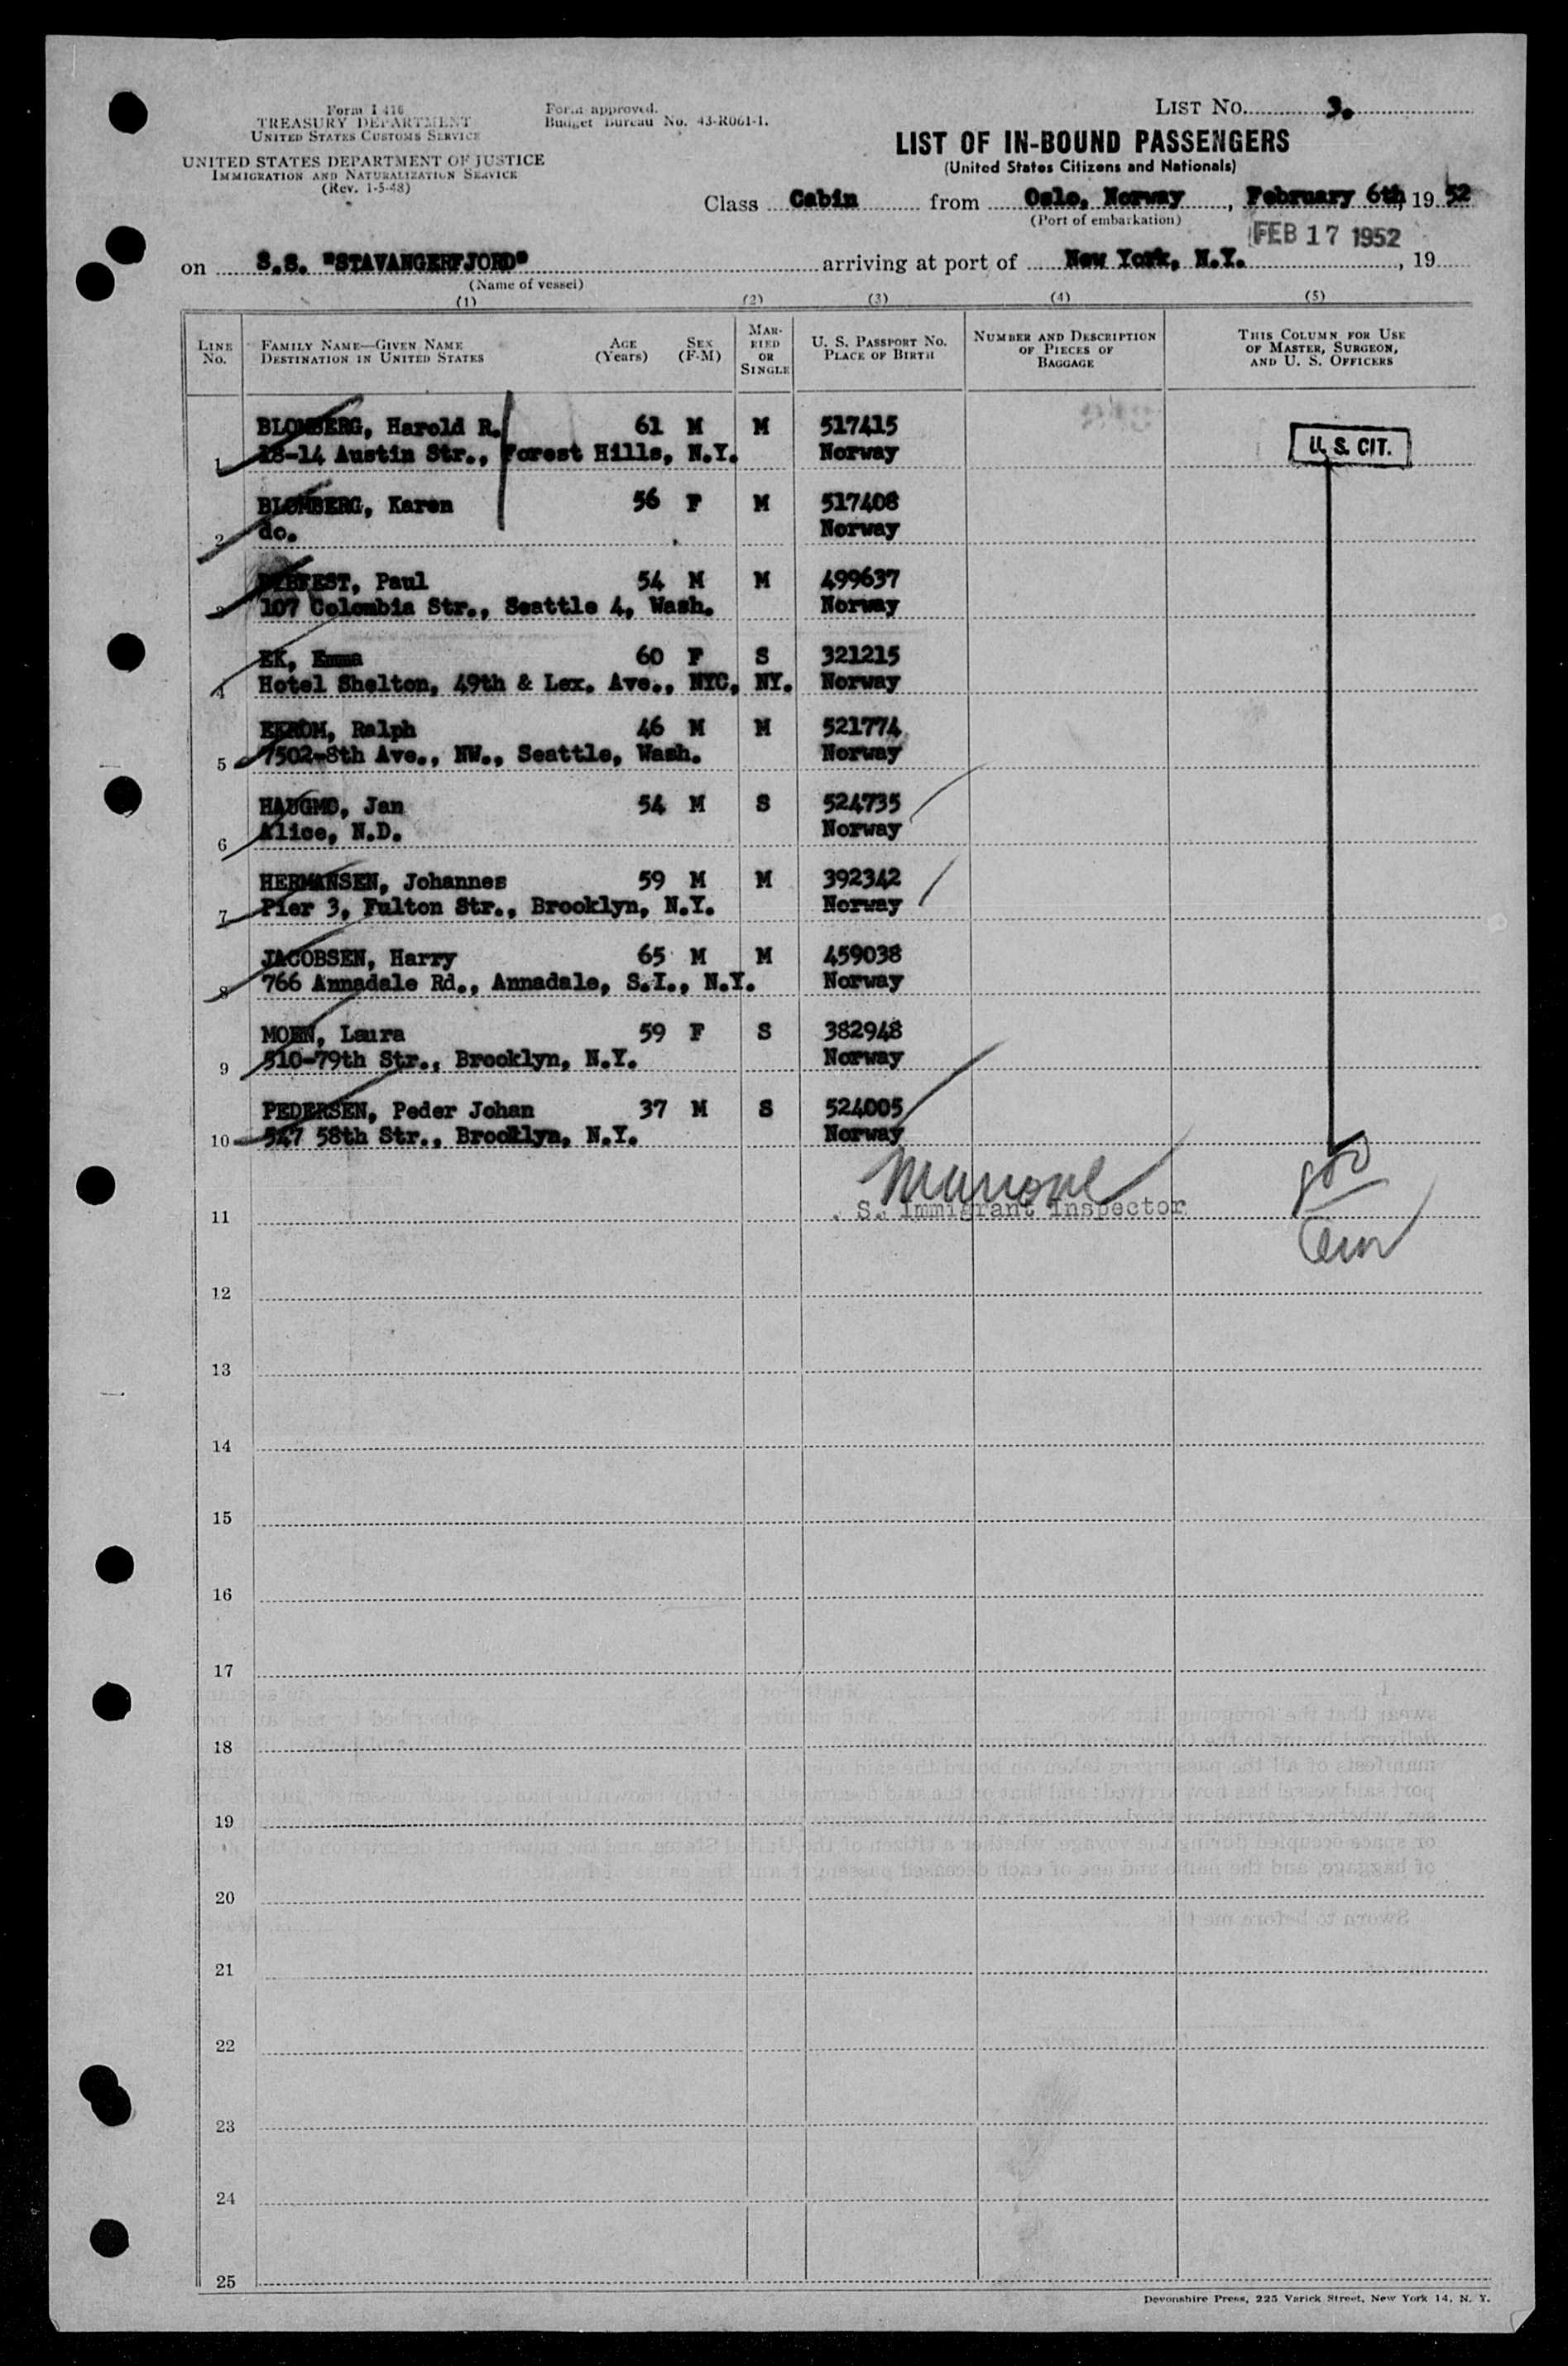 Form I 416
TREASURY DEPARTMENT
UNITED STATES CUSTOMS SERVICE
UNITED STATES DEPARTMENT OF JUSTICE
IMMIGRATION AND NATURALIZATION SERVICE
(Rev. 1-5-48)
Form approved.
Budget Bureau No. 43-R061-1.
LIST NO. 3.
LIST OF IN-BOUND PASSENGERS
(United States Citizens and Nationals)
Class Cabin from Oslo, Norway, February 6th, 19 52
(Port of embarkation)
FEB 17 1952
on S.S. "STAVANGERFJORD" arriving at port of New York, N.Y. , 19
(Name of vessel)
(1) (2) (3) (4) (5)
LINE NO. FAMILY NAME—GIVEN NAME DESTINATION IN UNITED STATES AGE (Years) SEX (F-M) MARRIED OR SINGLE U. S. PASSPORT NO. PLACE OF BIRTH NUMBER AND DESCRIPTION OF PIECES OF BAGGAGE THIS COLUMN FOR USE OF MASTER, SURGEON, AND U. S. OFFICERS
BLOMBERG, Harold R. 61 M M 517415
1 18-14 Austin Str., Forest Hills, N.Y. Norway
U. S. CIT.
BLOMBERG, Karen 56 F M 517408
2 do. Norway
Paul 54 M M 499637
3 107 Colombia Str., Seattle 4, Wash. Norway
EK, Emma 60 F S 321215
4 Hotel Shelton, 49th & Lex. Ave., NYC, NY. Norway
EKROM, Ralph 46 M M 521774
5 7502-8th Ave., NW., Seattle, Wash. Norway
HAUGMO, Jan 54 M S 524735
6 Alice, N.D. Norway
HERMANSEN, Johannes 59 M M 392342
7 Pier 3, Fulton Str., Brooklyn, N.Y. Norway
JACOBSEN, Harry 65 M M 459038
8 766 Annadale Rd., Annadale, S.I., N.Y. Norway
MOEN, Laura 59 F S 382948
9 510-79th Str., Brooklyn, N.Y. Norway
PEDERSEN, Peder Johan 37 M S 524005
10 547 58th Str., Brooklyn, N.Y. Norway
11 . S. Immigrant Inspector
12
13
14
15
16
17
18
19
20
21
22
23
24
25
Devonshire Press, 225 Varick Street, New York 14, N. Y.